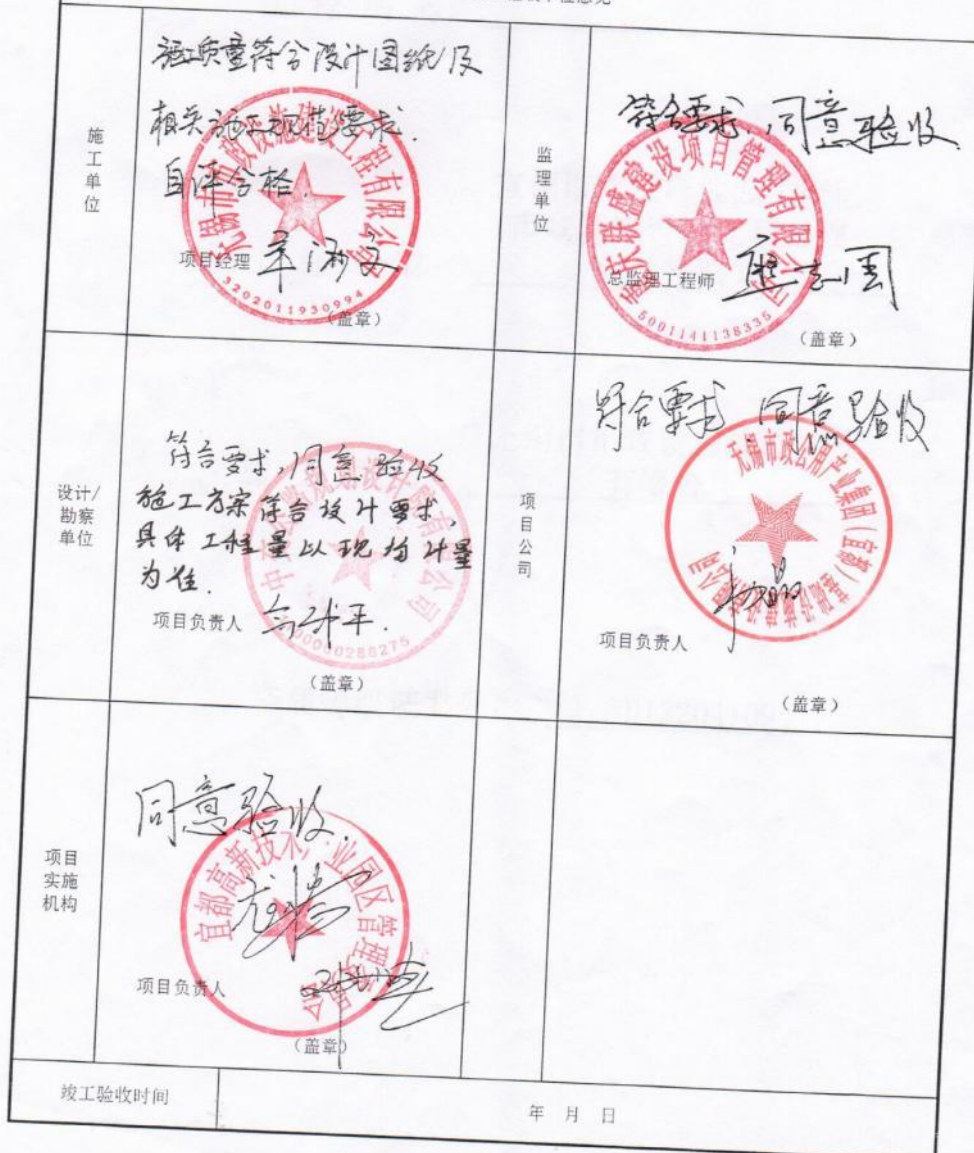 施工单位
施工质量符合设计图纸及
相关施工规范要求.
自评合格
无锡市市政设施建设工程有限公司
项目经理
3202011930994
(盖章)
监理单位
符合要求,同意验收
重庆联盛建设项目管理有限公司
总监理工程师
5001141138335
(盖章)
设计/
勘察
单位
符合要求,同意验收
施工方案符合设计要求,
具体工程量以现场计量
为准.
项目负责人
00000288275
(盖章)
项目公司
符合要求 同意验收
无锡市政公用产业集团(宜都)基础设施建设有限公司
项目负责人
(盖章)
项目
实施
机构
同意验收.
宜都高新技术产业园区管理委员会
项目负责人
(盖章)
竣工验收时间
年 月 日